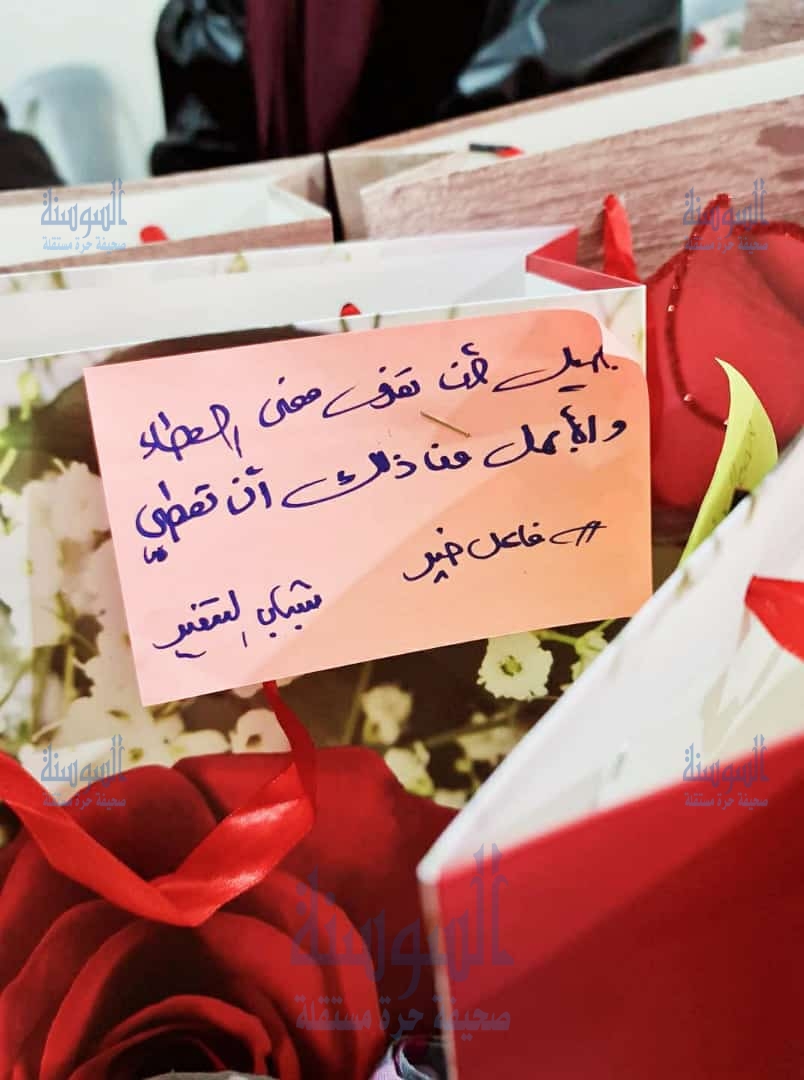 السوسنة
صحيفة حرة مستقلة
السوسنة
صحيفة حرة مستقلة
جميل أن تعرف معنى العطاء
والأجمل من ذلك أن تعطي
# فاعل خير
شباب التغيير
السوسنة
صحيفة حرة مستقلة
السوسنة
صحيفة حرة مستقلة
السوسنة
صحيفة حرة مستقلة